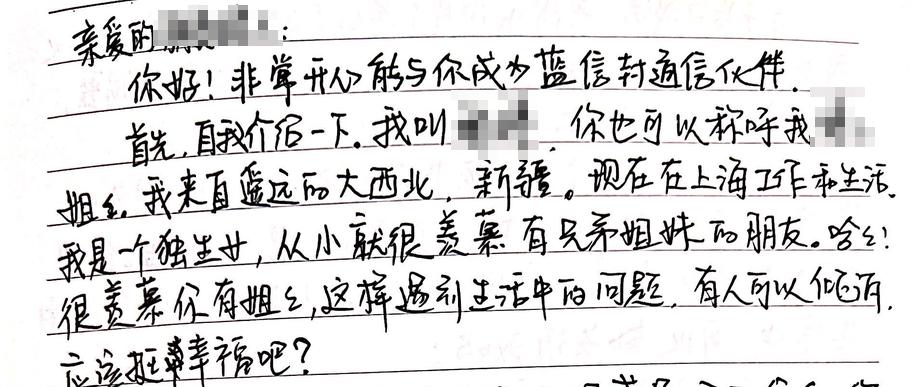 亲爱的:
你好！非常开心能与你成为蓝信封通信伙伴.
首先,自我介绍一下。我叫,你也可以称呼我
姐々。我来自遥远的大西北,新疆。现在在上海工作和生活.
我是一个独生女,从小就很羡慕有兄弟姐妹的朋友。哈々!
很羡慕你有姐々,这样遇到生活中的问题,有人可以倾诉,
应该挺幸福吧?